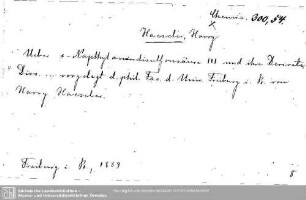 Chemie. 300,54.
Haeseler, Harry
Ueber α-Naphthylamindisulfonsäure III und ihre Derivate
Diss. ... vorgelegt d. phil. Fac. d. Univ. Freiburg i. B. von
Harry Haeseler.
Freiburg i. B., 1889
8
Sächsische Landesbibliothek -
Staats- und Universitätsbibliothek Dresden